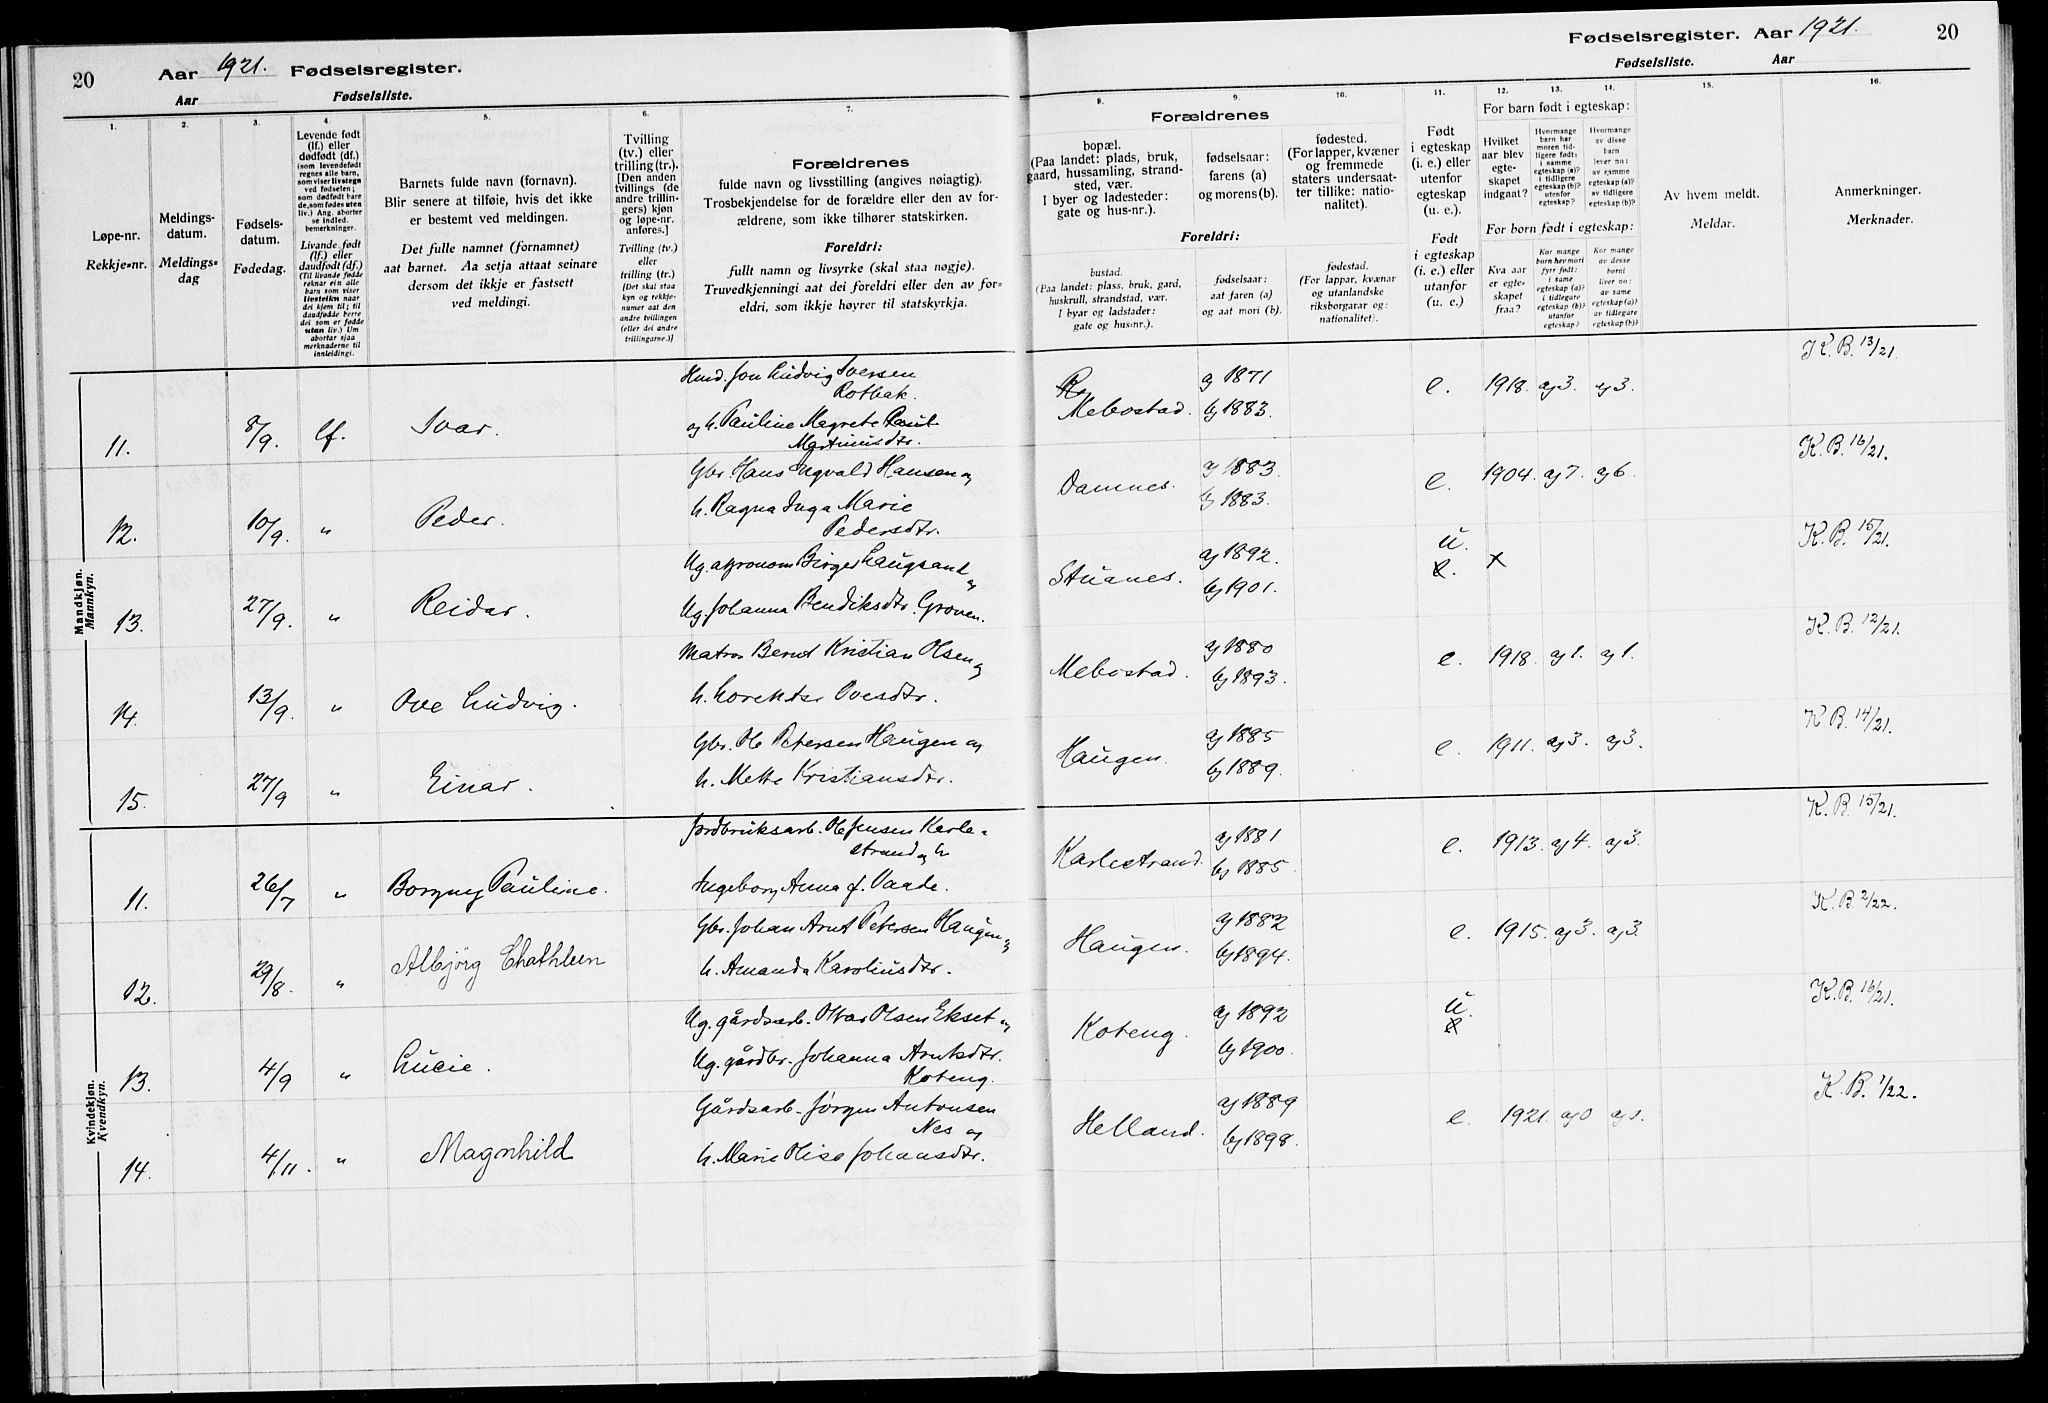 20
Aar 1921. Fødselsregister.
Aar Fødselsliste.
1.
Løpe-nr.
Rekkje=nr.
2.
Meldings-
datum.
Meldings=
dag
3.
Fødsels-
datum.
Fødedag.
4.
Levende født
(lf.) eller
dødfødt (df.)
(som levendefødt
regnes alle barn,
som viser livstegn
ved fødselen;
som dødfødt bare
de, som fødes uten
liv.) Ang. aborter
se indled.
bemerkninger.
Livande født
(lf.) eller
daudfødt (df.)
(Til livande fødde
reknar ein alle
barn som viser
livsteikn naar
dei kjem til; til
daudfødde berre
dei som er fødde
utan liv.) Um
abortar sjaa
merknaderne til
innleidingi.
5.
Barnets fulde navn (fornavn).
Blir senere at tilføie, hvis det ikke
er bestemt ved meldingen.
Det fulle namnet (fornamnet)
aat barnet. Aa setja attaat seinare
dersom det ikkje er fastsett
ved meldingi.
6.
Tvilling
(tv.) eller
trilling (tr.).
[Den anden
tvillings (de
andre trillin-
gers) kjøn
og løpe-nr.
anføres.]
Tvilling (tv.)
eller
trilling (tr.)
[Det skal staa
kyn og rekkje-
numer aat den
andre tvillingen
(eller dei andre
trillingarne.)]
7.
Forældrenes
fulde navn og livsstilling (angives nøiagtig).
Trosbekjendelse for de forældre eller den av for-
ældrene, som ikke tilhører statskirken.
Foreldri:
fullt namn og livsyrke (skal staa nøgje).
Truvedkjenningi aat dei foreldri eller den av for=
eldri, som ikkje høyrer til statskyrkja.
Fødselsregister. Aar 1921. 20
Fødselsliste. Aar
Forældrenes
8.
bopæl.
(Paa landet: plads, bruk,
gaard, hussamling, strand-
sted, vær.
I byer og ladesteder:
gate og hus-nr.).
9.
fødselsaar:
farens (a)
og morens (b).
10.
fødested.
(For lapper, kvæner
og fremmede
staters undersaat-
ter tillike: natio-
nalitet).
Foreldri:
bustad.
(Paa landet: plass, bruk, gard,
huskrull, strandstad, vær.
I byar og ladstader:
gate og hus=nr.).
fødselsaar:
aat faren (a)
og aat mori (b).
fødestad.
(For lappar, kvænar
og utanlandske
riksborgarar og:
nationalitet).
11.
Født
i egteskap
(i. e.) eller
utenfor
egteskap
(u. e.).
Født
i egteskap
(i. e.) eller
utanfor
(u. e.)
12. 13. 14.
For barn født i egteskap:
Hvilket
aar blev
egte-
skapet
indgaat?
Hvormange
barn har
moren tid-
ligere født:
i samme
egteskap (a)?
i tidligere
egteskap (b)?
utenfor
egteskap?
Hvormange
av disse
barn
lever nu:
av samme
egteskap (a)?
av tidligere
egteskap (b)?
For born født i egteskap:
Kva aar
er egte-
skapet
fraa?
Kor mange
born hev mori
fyrr født:
i same
egteskap (a)?
i tidlegare
egteskap (b)?
utanfor
egteskap?
Kor mange
av desse
borni
liver no:
av same
egteskap (a)?
av tidlegare
egteskap (b)?
15.
Av hvem meldt.
Meldar.
16.
Anmerkninger.
Merknader.
Mandkjøn.
Mannkyn.
11. 8/9. lf. Ivar.
Hmd. Jon Ludvig Iversen
Rotbak.
og h. Pauline Magrete
Martinusdtr.
Mebostad. a) 1871 b) 1883. e. 1918. a) 3. a) 3. K. B. 13/21.
12. 10/9. " Peder.
Gbr. Hans Ingvald Hansen og
h. Ragna Inga Marie
Pedersdtr.
Damnes. a) 1883. b) 1883. e. 1904. a) 7. a) 6. K. B. 16/21.
13. 27/9. " Reidar.
Ug. agronom Birger Laugsand
og
Ug. Johanna Bendiksdtr. Groven.
Stuanes. a) 1892. b) 1901. u. e. x K. B. 15/21.
14. 13/9. " Ove Ludvig.
Matros Bernt Kristian Olsen og
h. Lorentse Ovesdtr.
Mebostad. a) 1880 b) 1893. e. 1918. a) 1. a) 1. K. B. 12/21.
15. 27/9 " Einar.
Gbr. Ole Petersen Haugen og
h. Mette Kristiansdtr.
Haugen. a) 1885 b) 1889. e. 1911. a) 3. a) 3. K B. 14/21.
Kvindekjøn.
Kvendkyn.
11. 26/7 " Borgny Pauline.
Jordbruksarb. Ole Jensen Karle-
strand og h
Ingeborg Anna f. Vaade.
Karlestrand. a) 1881 b) 1885. e. 1913. a) 4. a) 3. K. B. 15/21.
12. 29/8. " Albjörg Chathleen
Gbr. Johan Arnt Petersen Haugen og
h. Amanda Karoliusdtr.
Haugen. a) 1882 b) 1894. e. 1915. a) 3. a) 3. K. B. 2/22.
13. 4/9 " Lucie.
Ug. gårdsarb. Olvar Olsen Ekset og
Ug. gårdbr. Johanna Arntsdtr.
Koteng.
Koteng. a) 1892 b) 1900. u. e K. B. 16/21.
14. 4/11. " Magnhild
Gårdsarb. Jörgen Antonsen
Nes og
h. Marie Olise Johansdtr.
Helland. a) 1889 b) 1898. e. 1921. a) 0 K. B. 1/22.